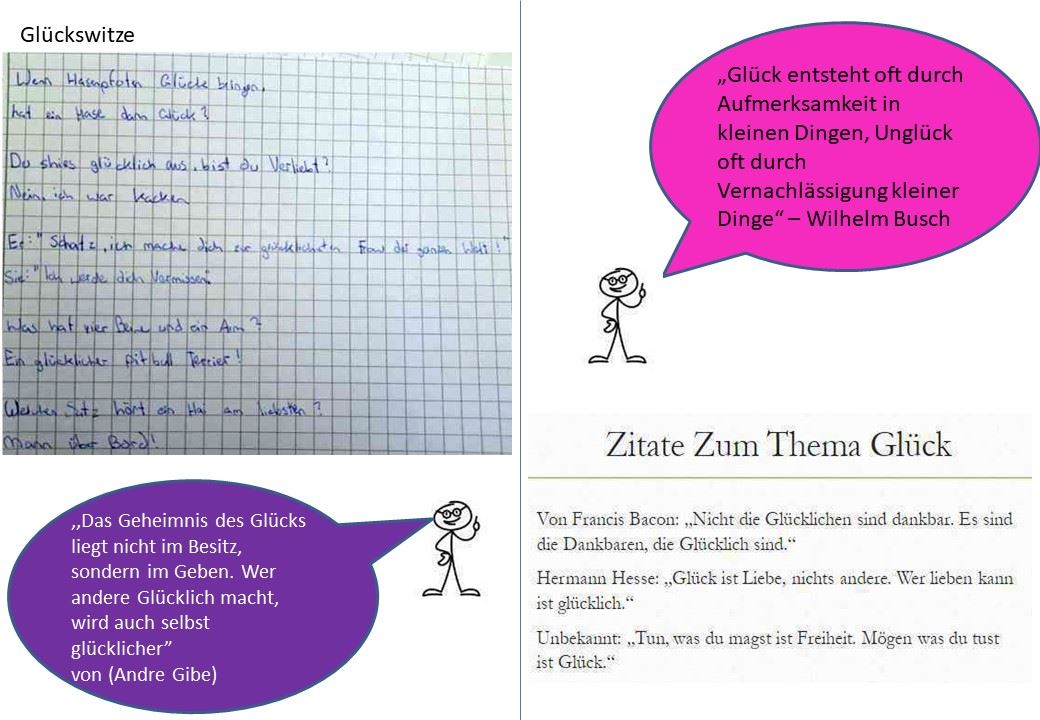 Glückswitze
Wenn Hasenpfoten Glücke bringen,
hat ein Hase dann Glück?
Du shies glücklich aus, bist du Verliebt?
Nein, ich war kacken
Er: "Schatz, ich mache dich zur glücklichsten Frau der ganzen Welt!"
Sie: "Ich werde dich Vermissen"
Was hat vier Beine und ein Arm?
Ein glücklicher Pitbull Terrier!
Welchen Satz hört ein Hai am liebsten?
Mann über Bord!
,,Das Geheimnis des Glücks
liegt nicht im Besitz,
sondern im Geben. Wer
andere Glücklich macht,
wird auch selbst
glücklicher”
von (Andre Gibe)
„Glück entsteht oft durch
Aufmerksamkeit in
kleinen Dingen, Unglück
oft durch
Vernachlässigung kleiner
Dinge“ – Wilhelm Busch
Zitate Zum Thema Glück
Von Francis Bacon: „Nicht die Glücklichen sind dankbar. Es sind
die Dankbaren, die Glücklich sind.“
Hermann Hesse: „Glück ist Liebe, nichts andere. Wer lieben kann
ist glücklich.“
Unbekannt: „Tun, was du magst ist Freiheit. Mögen was du tust
ist Glück.“